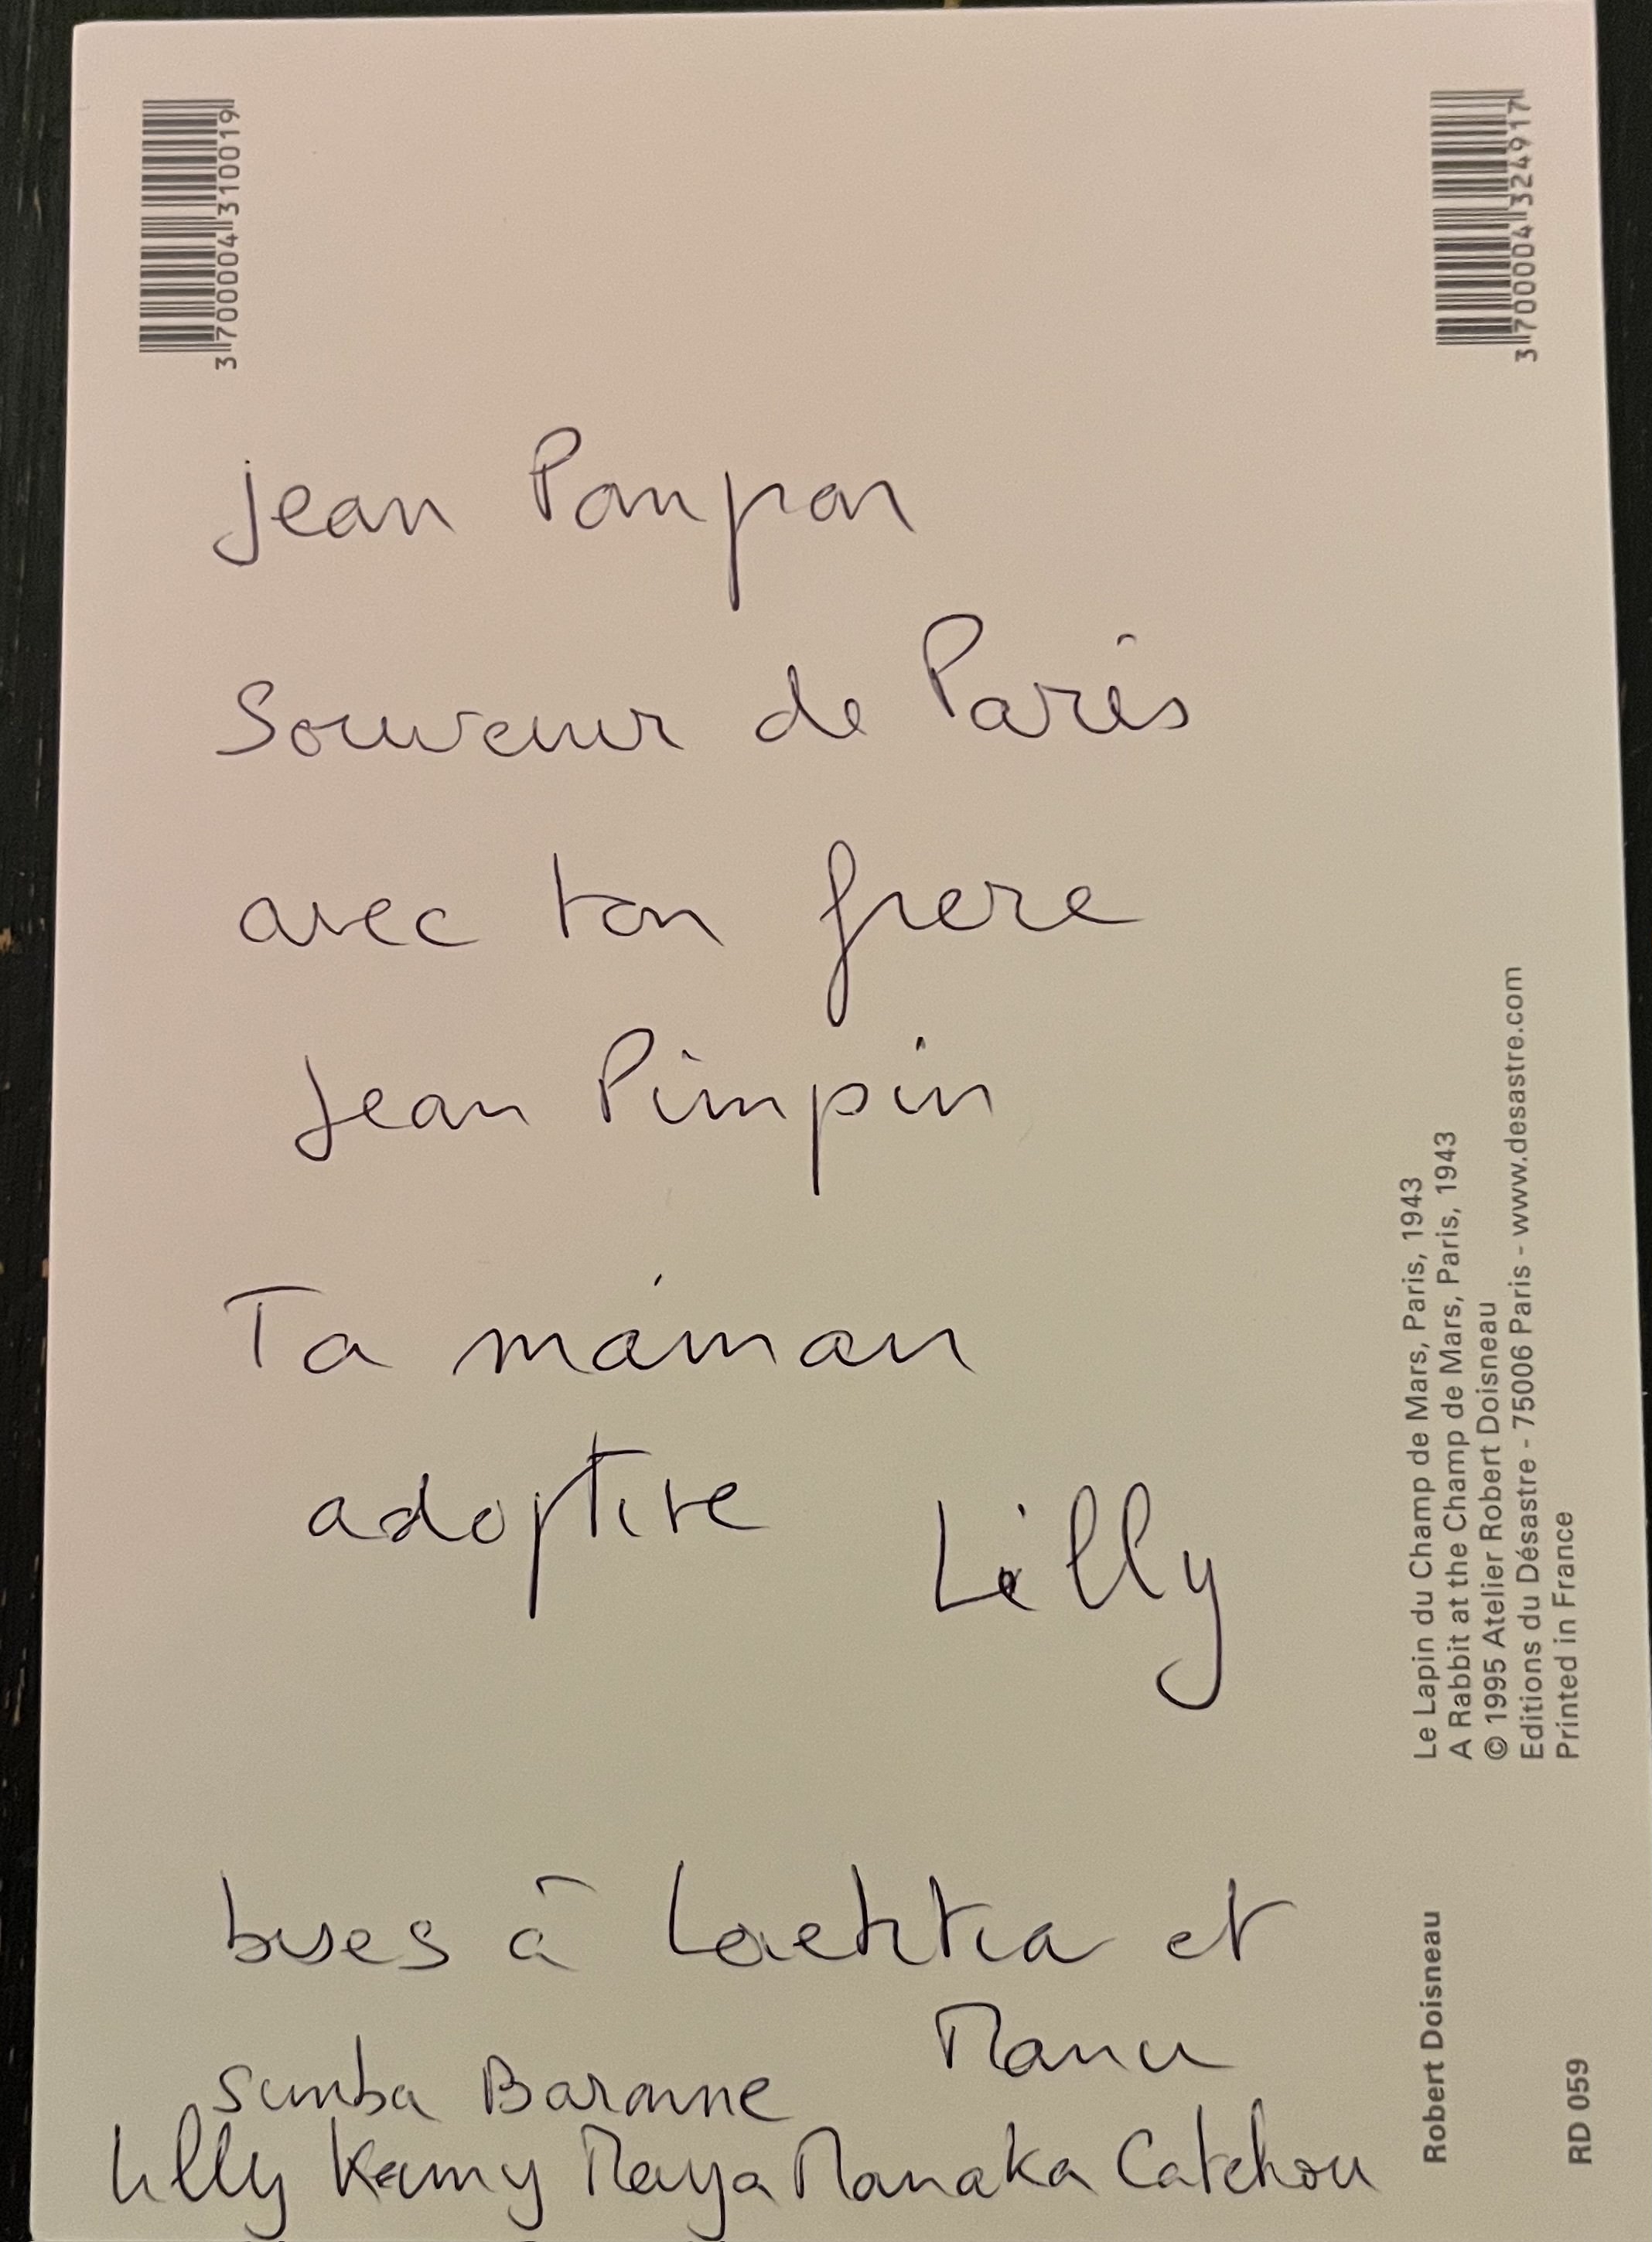 3 700004 310019
3 700004 324917
Jean Pompon
Souvenir de Paris
avec ton frere
Jean Pimpin
Ta maman
adoptive Lilly
bises à Laetitia et
Manu
Simba Baronne
Lilly Kemmy Maya Manaka Catchou
Le Lapin du Champ de Mars, Paris, 1943
A Rabbit at the Champ de Mars, Paris, 1943
© 1995 Atelier Robert Doisneau
Editions du Désastre - 75006 Paris - www.desastre.com
Printed in France
Robert Doisneau
RD 059